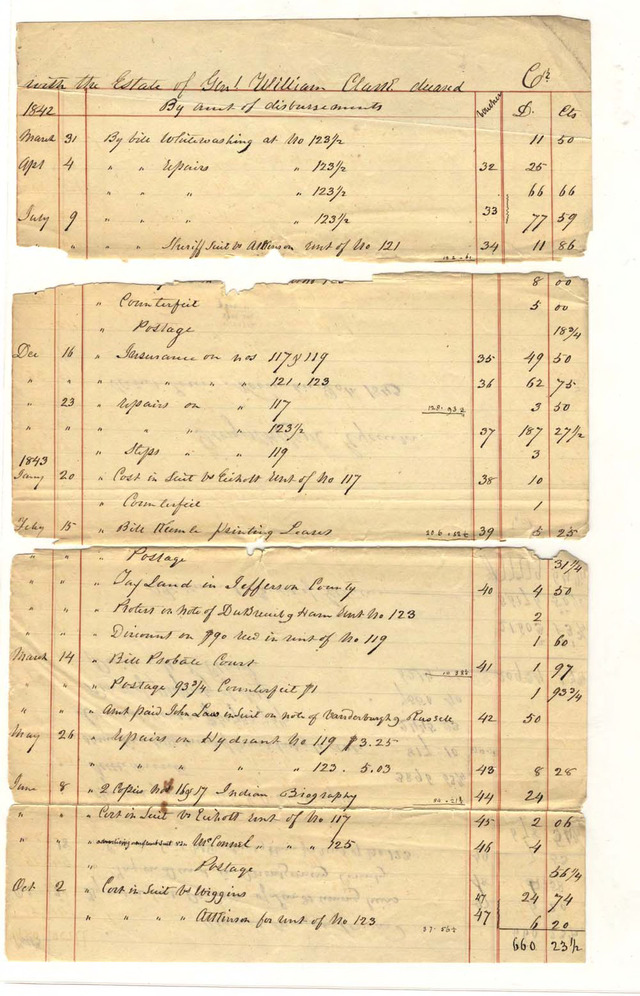 with the Estate of Genl. William Clark deceased Cr.
1842 By amt of disbursements Voucher D. Cts
March 31 By bill Whitewashing at No 123 1/2 11 50
Apl 4 " " repairs " 123 1/2 32 25
" " " 123 1/2 66 66
July 9 " " " " 123 1/2 33 77 59
" " " Sheriff Suit vs Atkinson rent of No 121 34 11 86
8 00
" Counterfeit 5 00
" Postage 18 3/4
Dec 16 " Insurance on nos 117 & 119 35 49 50
" " " " " " 121, 123 36 62 75
" 23 " repairs on " 117 3 50
" " " " " " 123 1/2 37 187 27 1/2
1843 " Steps " 119 3
Jany 20 " Cost in Suit vs Eichott rent of No 117 38 10
" Counterfeit 1
Feby 15 " Bill Keemle printing Leases 39 5 25
" " " Postage 31 1/4
" " " Tax Land in Jefferson County 40 4 50
" " " Protest on note of DuBreuil & Ham rent No 123 2
" " " Discount on $90 recd in rent of No 119 1 60
March 14 " Bill Probate Court 41 1 97
" " " Postage 93 3/4 Counterfeit $1 1 93 3/4
" " " Amt paid John Law in Suit on note of Vanderburgh & Russell 42 50
May 26 " repairs on Hydrant No 119 $3.25
" " " " 123. 5.03 43 8 28
June 8 " 2 Copies Nos 16 & 17 Indian Biography 44 24
" " " Cost in Suit vs Eichott rent of No 117 45 2 06
" " " McConnel " " " 125 46 4
Postage 56 1/4
Oct 2 " Cost in Suit vs Wiggins 47 24 74
" " " " Atkinson for rent of No 123 47 6 20
660 23 1/2